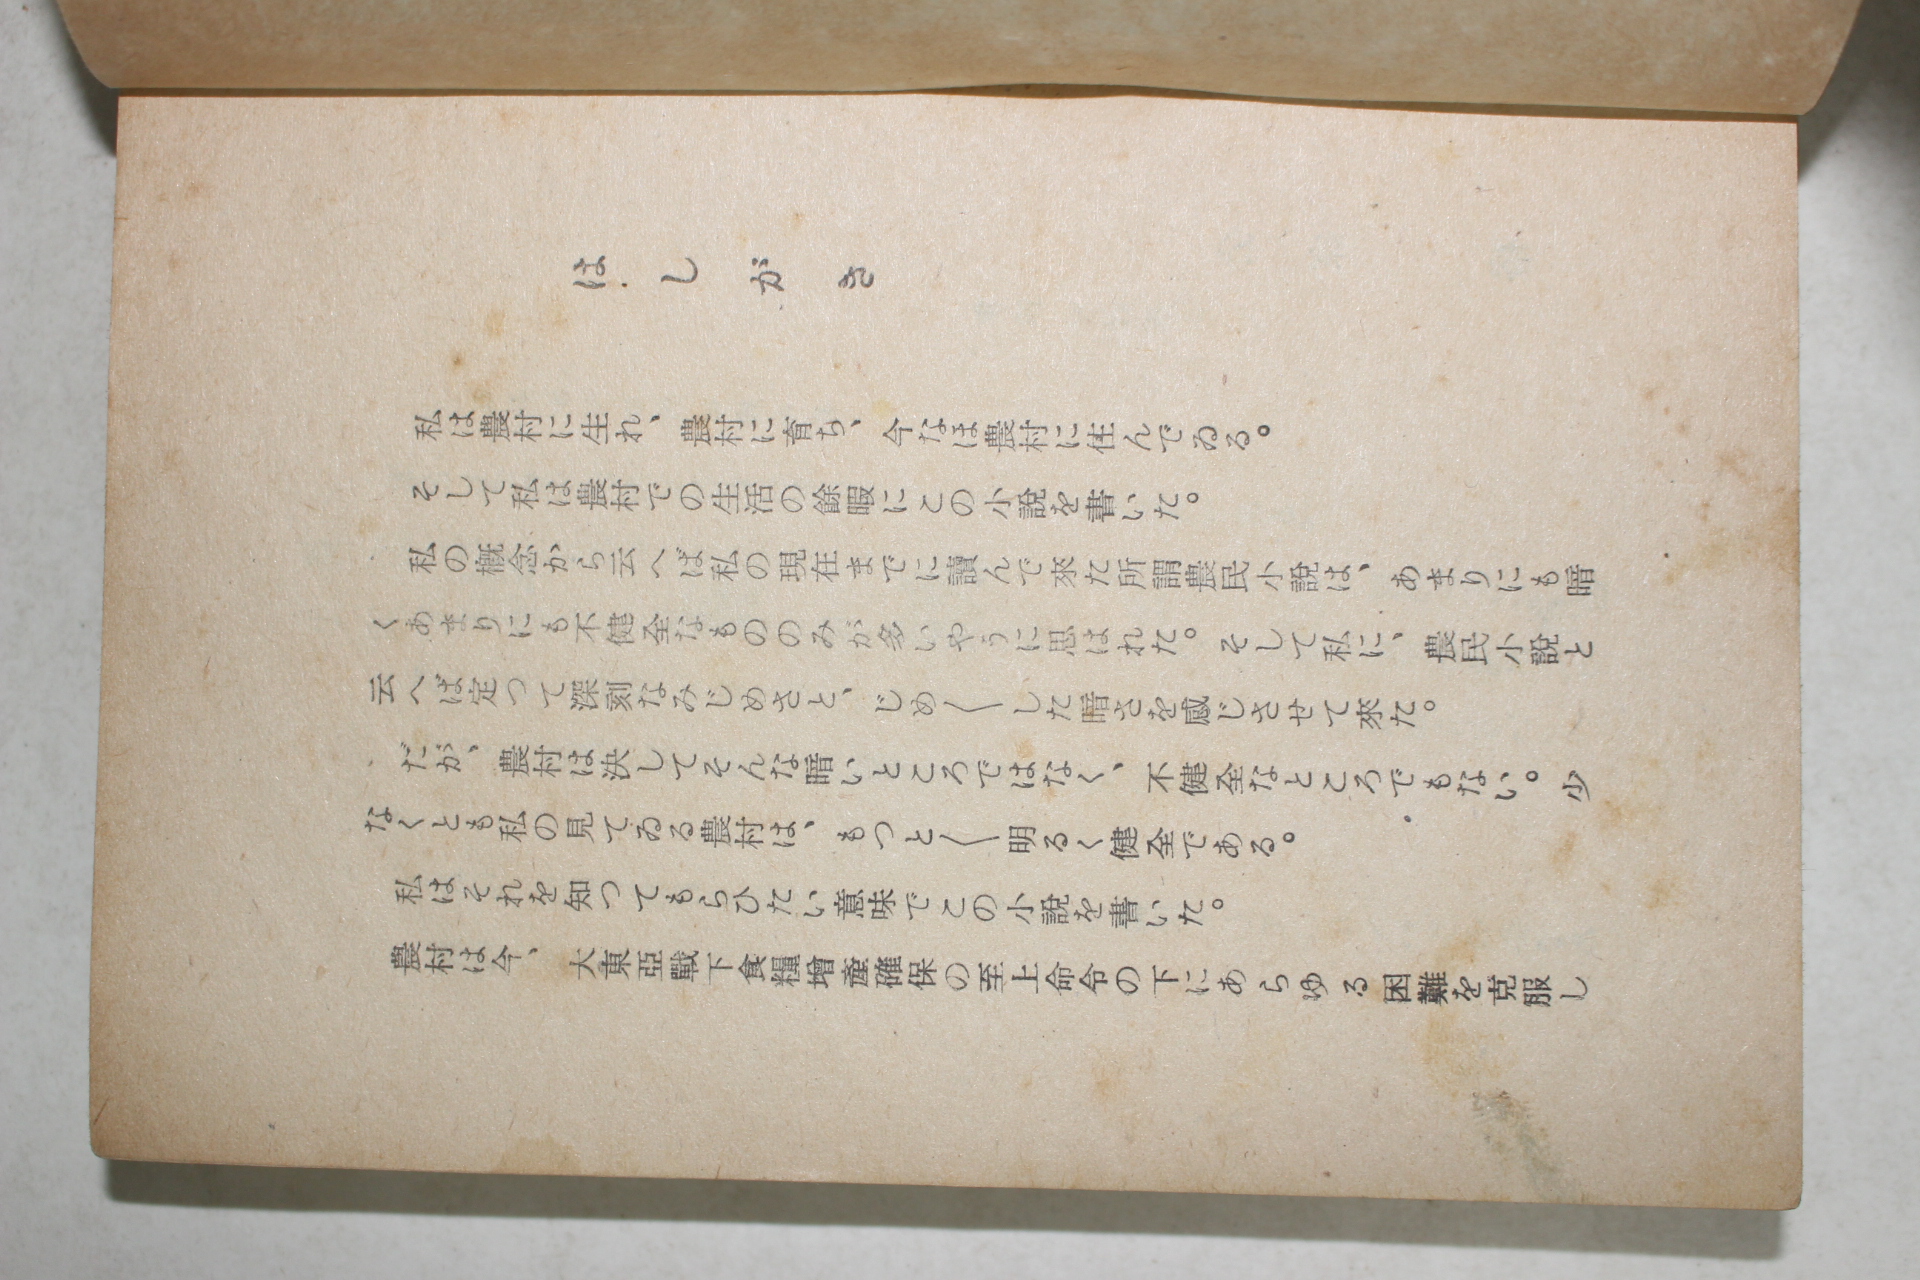 はしがき
私は農村に生れ、農村に育ち、今なほ農村に住んでゐる。
そして私は農村での生活の餘暇にこの小說を書いた。
私の槪念から云へば私の現在までに讀んで來た所謂農民小說は、あまりにも暗
くあまりにも不健全なもののみが多いやうに思はれた。そして私に、農民小說と
云へば定つて深刻なみじめさと、じめ〱した暗さを感じさせて來た。
だが、農村は決してそんな暗いところではなく、不健全なところでもない。少
なくとも私の見てゐる農村は、もつと〱明るく健全である。
私はそれを知つてもらひたい意味でこの小說を書いた。
農村は今、大東亞戰下食糧增產確保の至上命令の下にあらゆる困難を克服し